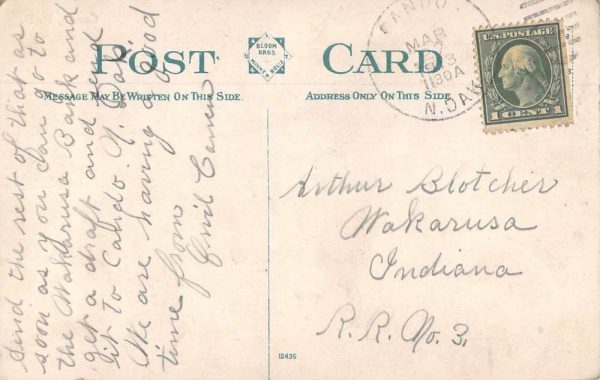 POST CARD
BLOOM
BROS.
MESSAGE MAY BE WRITTEN ON THIS SIDE.
ADDRESS ONLY ON THIS SIDE.
CANDO
MAR
1130A
N.DAK
U.S. POSTAGE
1 CENT 1
Send the rest of that as
soon as you can go to
the Wakarusa Bank and
get a draft and send
it to Cando N. Dak.
We are having a good
time from
Arthur Blotcher
Wakarusa
Indiana
R.R. No. 3.
12435